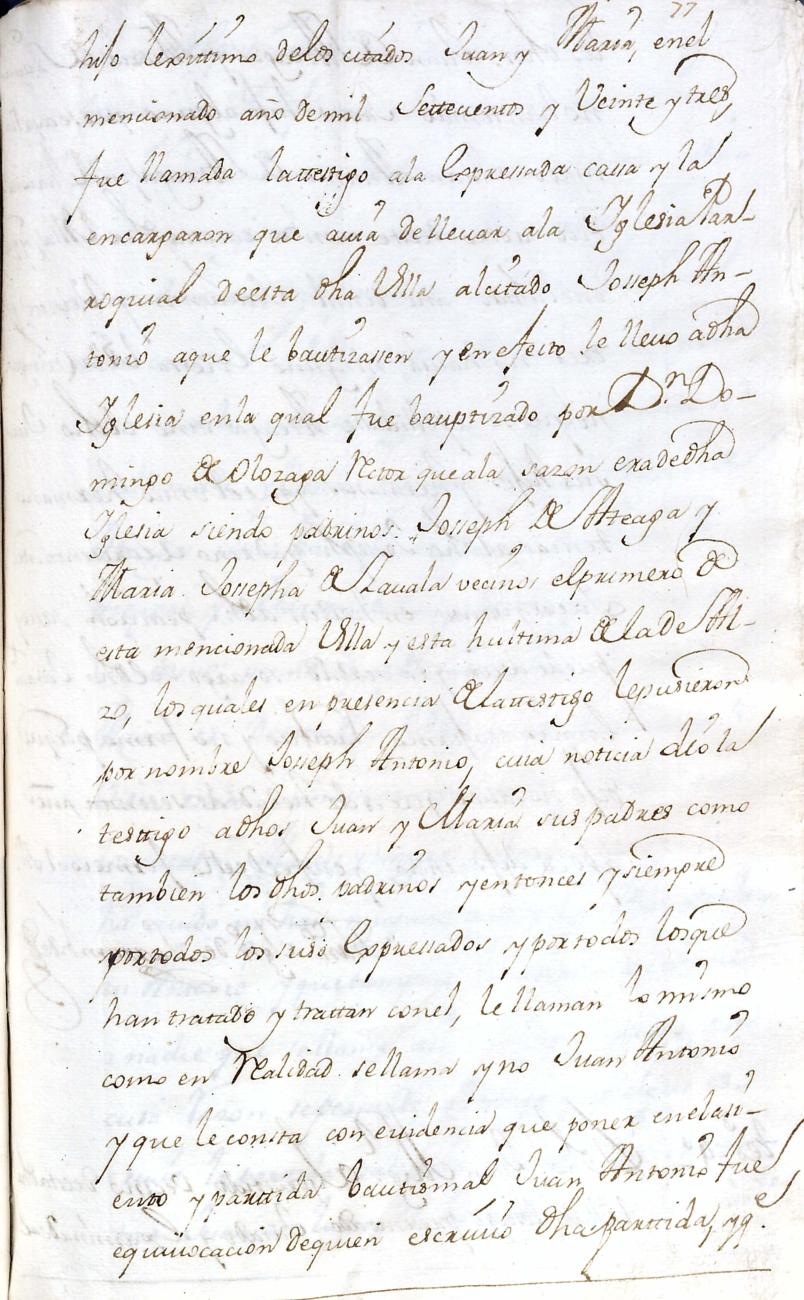 77
hijo lexittimo delos citados Juan y Maria, en el
mencionado año de mil Settecientos y Veinte y tres,
fue llamada lattestigo ala Expressada cassa y la
encargaron que auia de lleuar ala Yglesia Parr-
roquial de esta dha Villa al citado Joseph An-
tonio a que le bautizassen y en efecto le lleuo a dha
Yglesia en la qual fue bauptizado por Dn. Do-
mingo de Olozaga Rector que ala sazon era de dha
Yglesia siendo padrinos Josseph de Atteaga y
Maria Jossepha de Zauala vecinos el primero de
esta mencionada Villa y esta hultima de la de Al-
zo, los quales en presencia de lattestigo le pusieron
por nombre Josseph Antonio, cuia noticia dio la
testtigo a dhos Juan y Maria sus padres como
tambien los dhos padrinos y entonces y siempre
por todos los suso Expressados y por todos los que
han tratado y trattan con el, le llaman lo mismo
como en Realidad se llama y no Juan Antonio
y que le consta con euidencia que poner en el asi-
ento y parttida bautismal Juan Antonio fue
equiuocacion de quien escriuio dha parttida, y q.e